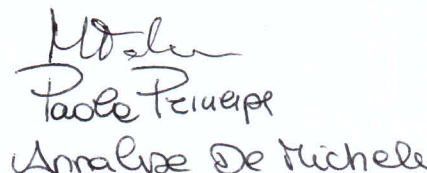 Paola Principe
Annalisa De Michele